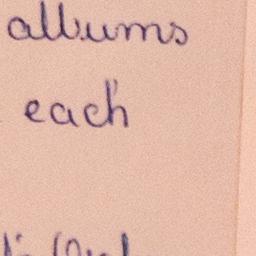 albums
each